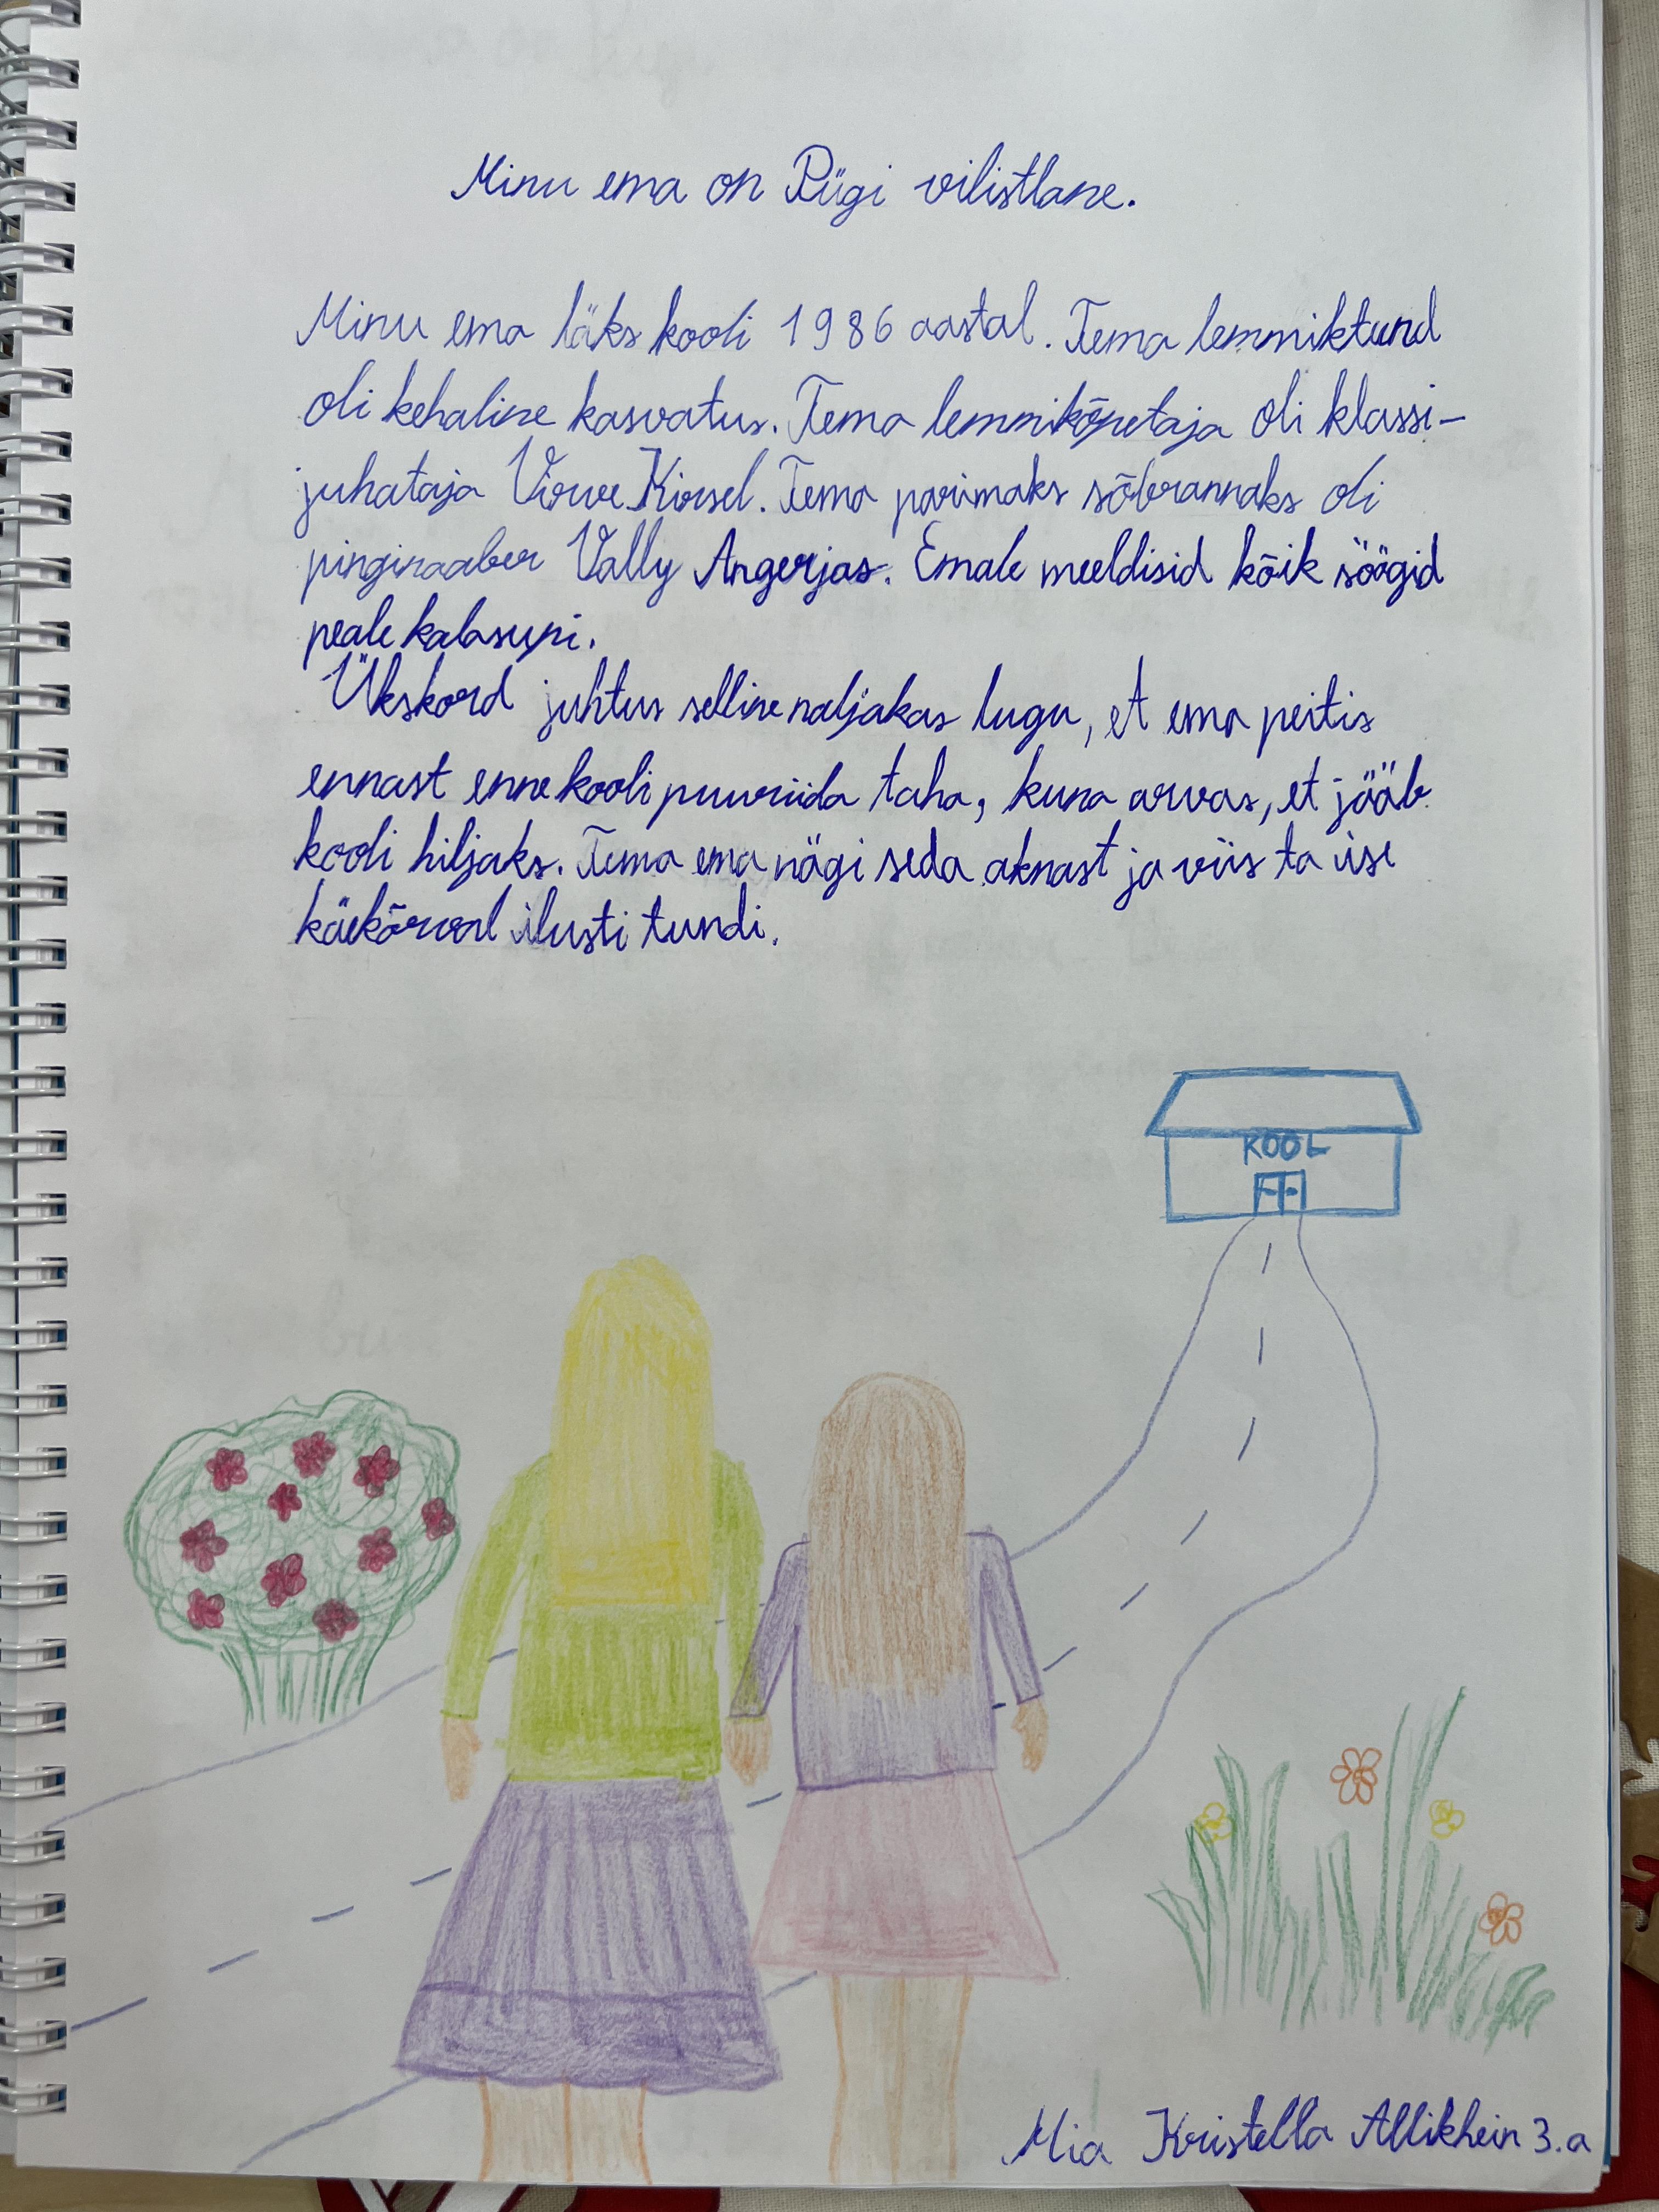 Minu ema on Pügi vilistlane.
Minu ema läks kooli 1986 aastal. Tema lemmiktund
oli kehaline kasvatus. Tema lemmikõpetaja oli klassi-
juhataja Virve Kirsel. Tema parimaks sõbrannaks oli
pinginaaber Vally Angerjas. Emale meeldisid kõik söögid
peale kalasupi.
Ükskord juhtus selline naljakas lugu, et ema peitis
ennast enne kooli puuriida taha, kuna arvas, et jääb
kooli hiljaks. Tema ema nägi seda aknast ja viis ta ise
käekõrval ilusti tundi.
KOOL
Mia Kristella Allikhein 3.a